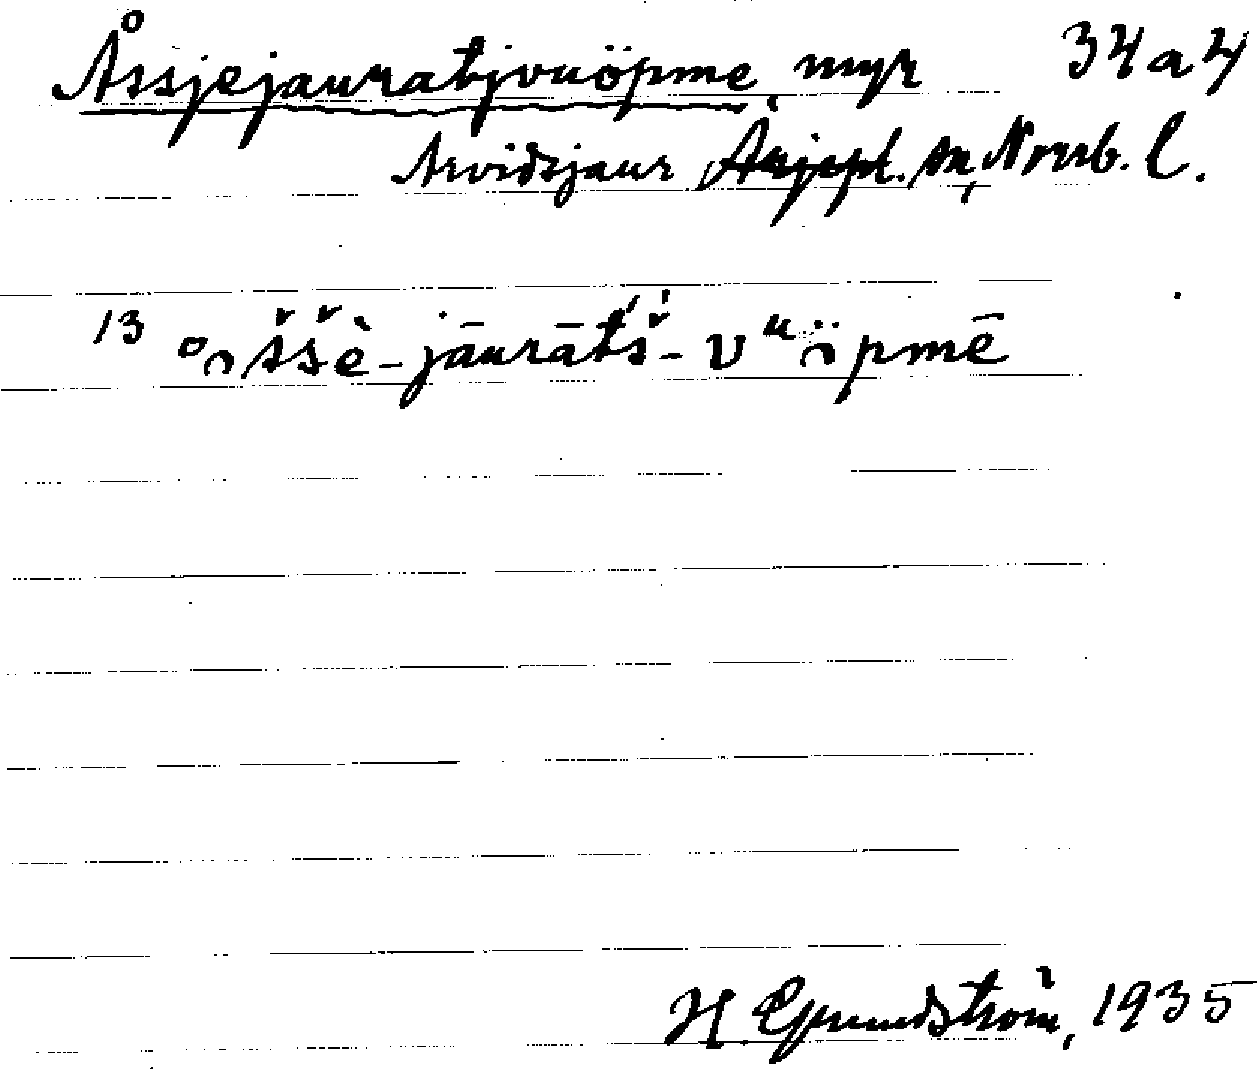 Åssjejauratjvuöpme, myr 34a4
Arvidsjaur Arjepl. sn, Norrb. l.
13 o̊ššè-jāurāt́š́-vᵘöpmē
H Grundström, 1935